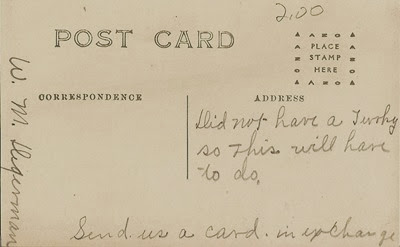 2.00
POST CARD
AZO
PLACE
STAMP
HERE
AZO
CORRESPONDENCE
ADDRESS
Did not have a Turkey
so this will have
to do.
Send us a card. in exchange
W. M.